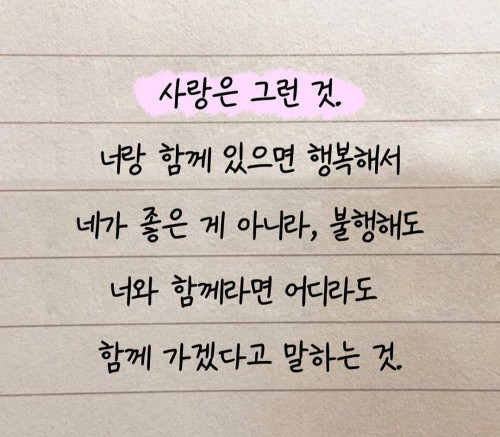 사랑은 그런 것.
너랑 함께 있으면 행복해서
네가 좋은 게 아니라, 불행해도
너와 함께라면 어디라도
함께 가겠다고 말하는 것.